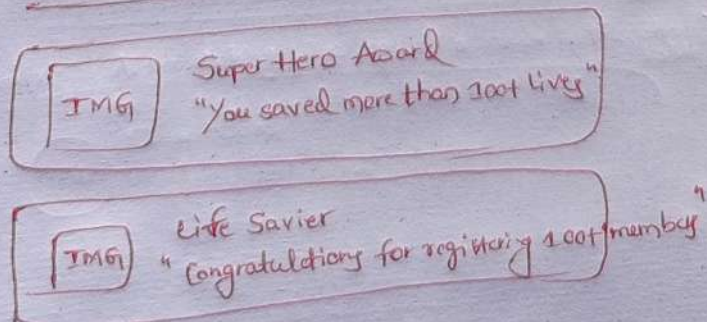 IMG
Super Hero Award
"You saved more than 100+ lives"
IMG
Life Savier
"Congratulations for registering 100+ members"